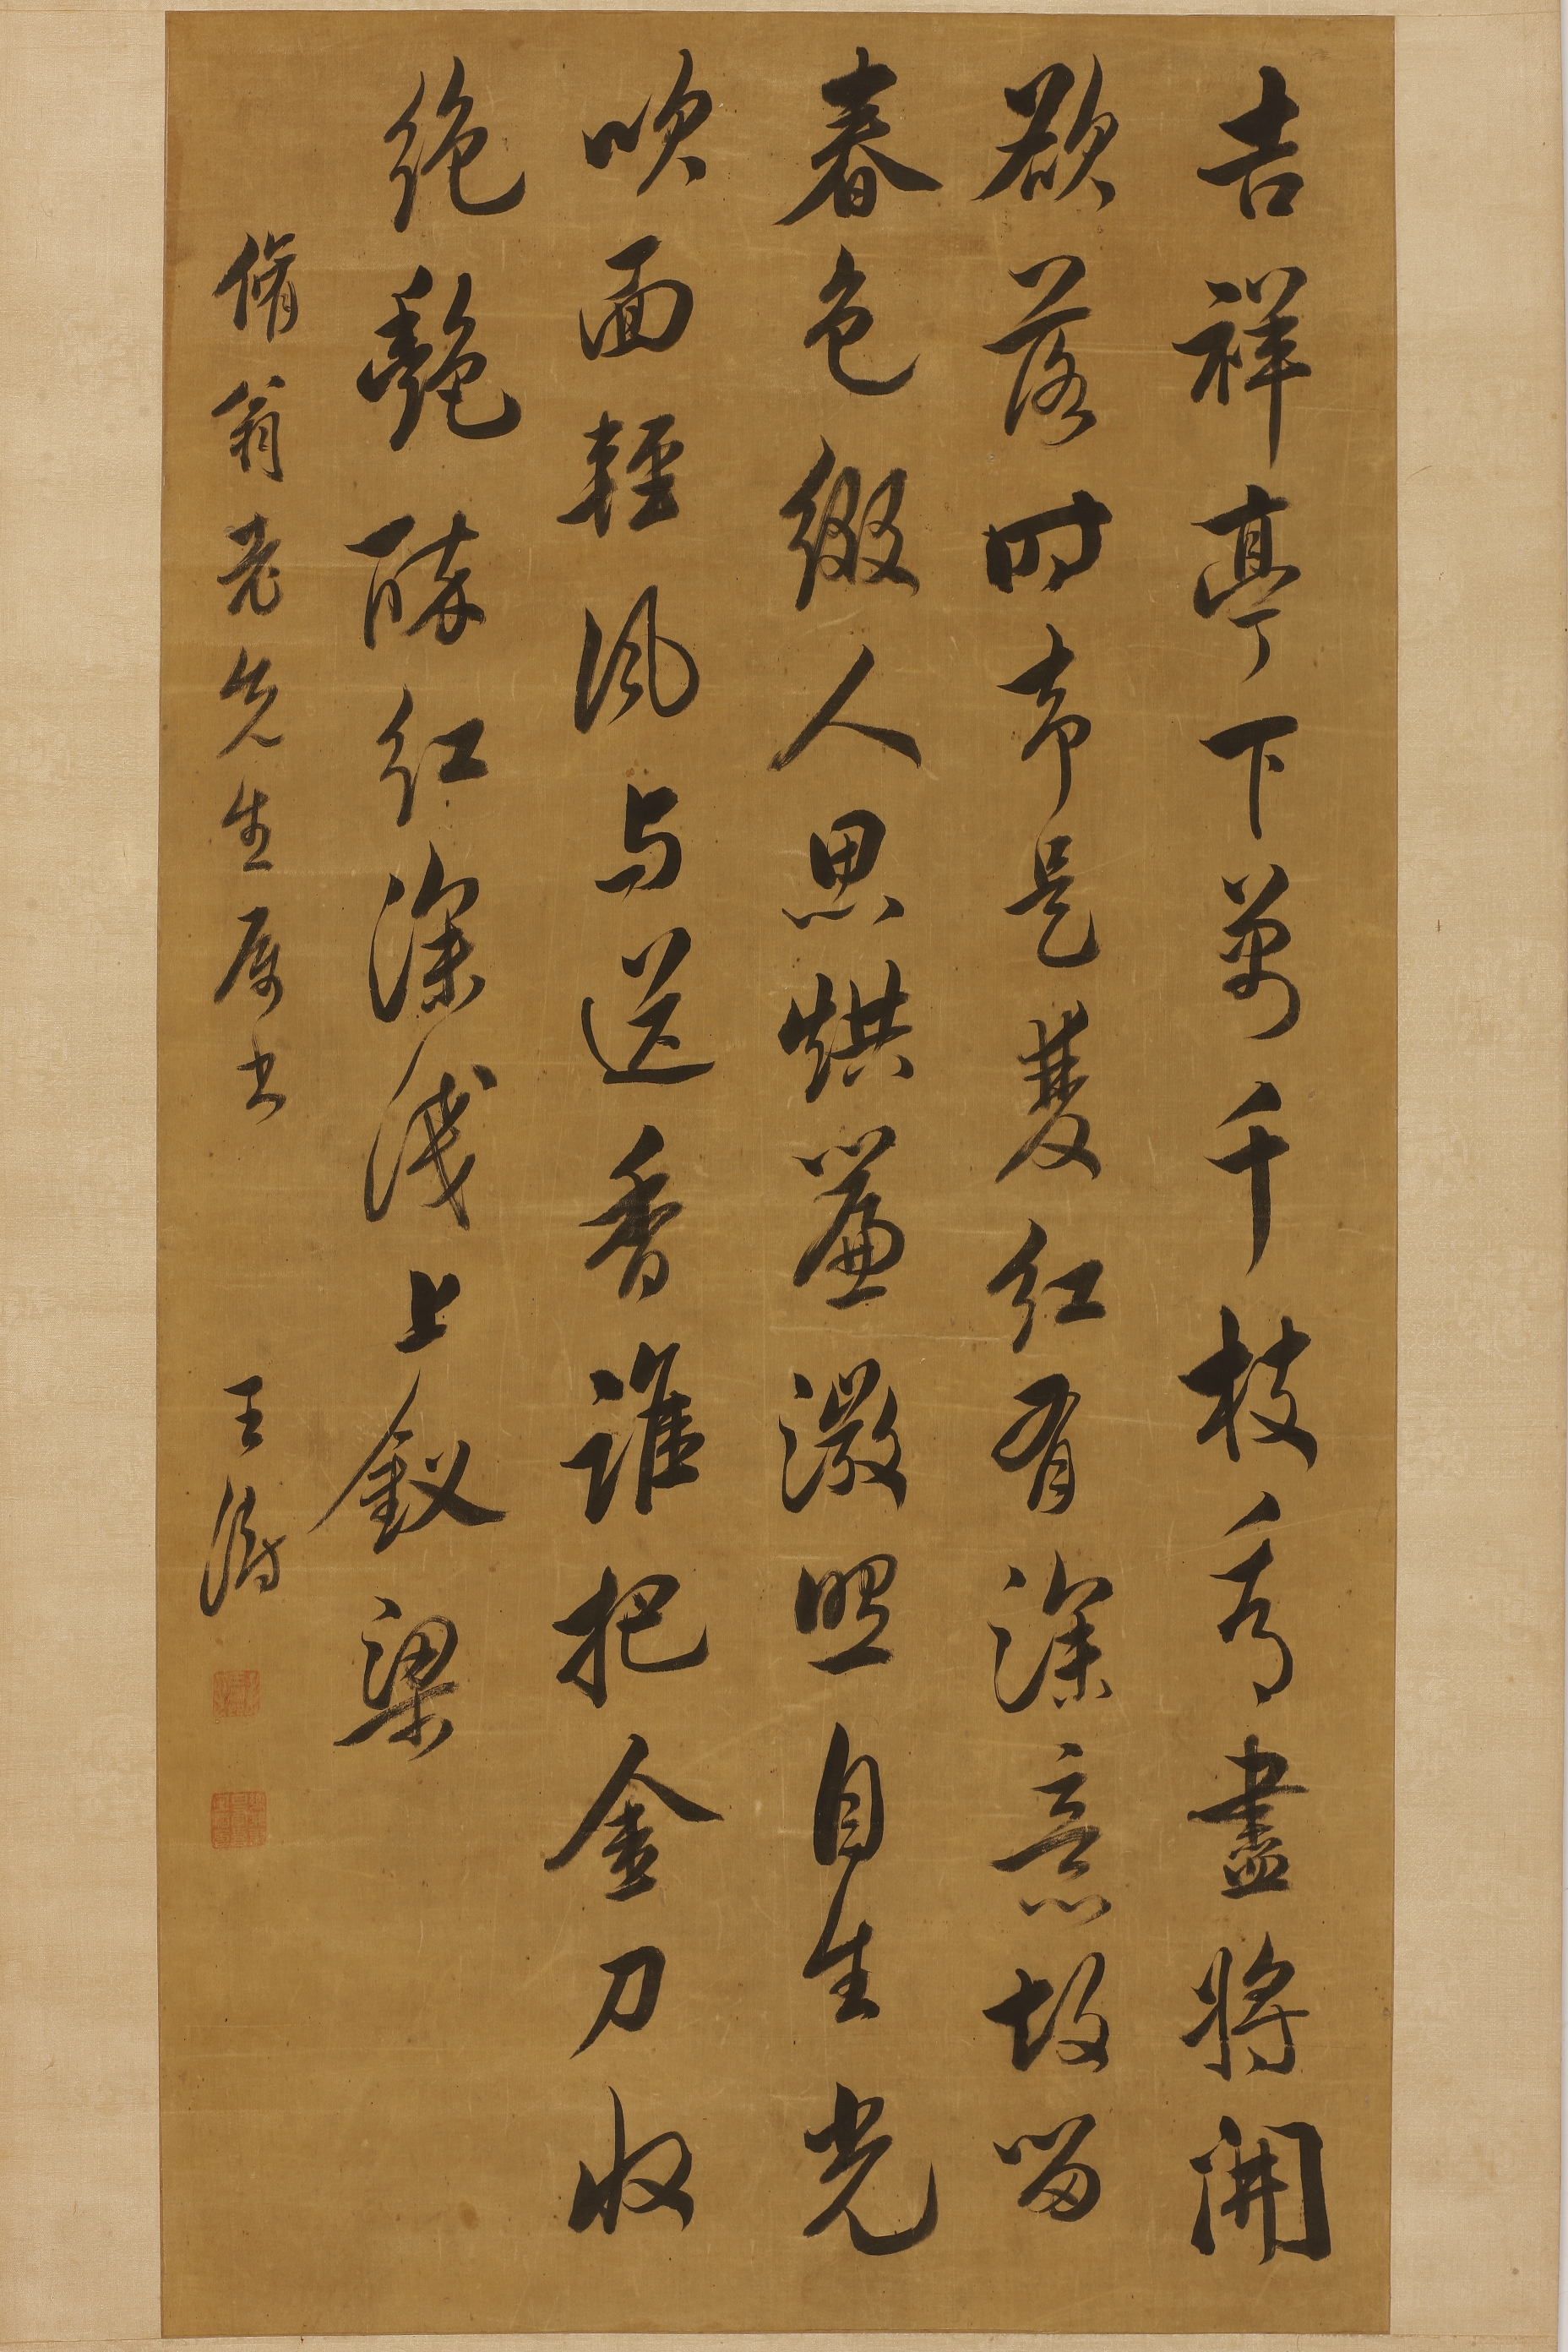 吉祥亭下萬千枝看盡將開
欲落時却是雙紅有深意故留
春色綴人思烘簾澂照自生光
吹面輕風与送香誰把金刀收
絕艷醉紅深淺上釵梁
脩翁老先生属书 王澍